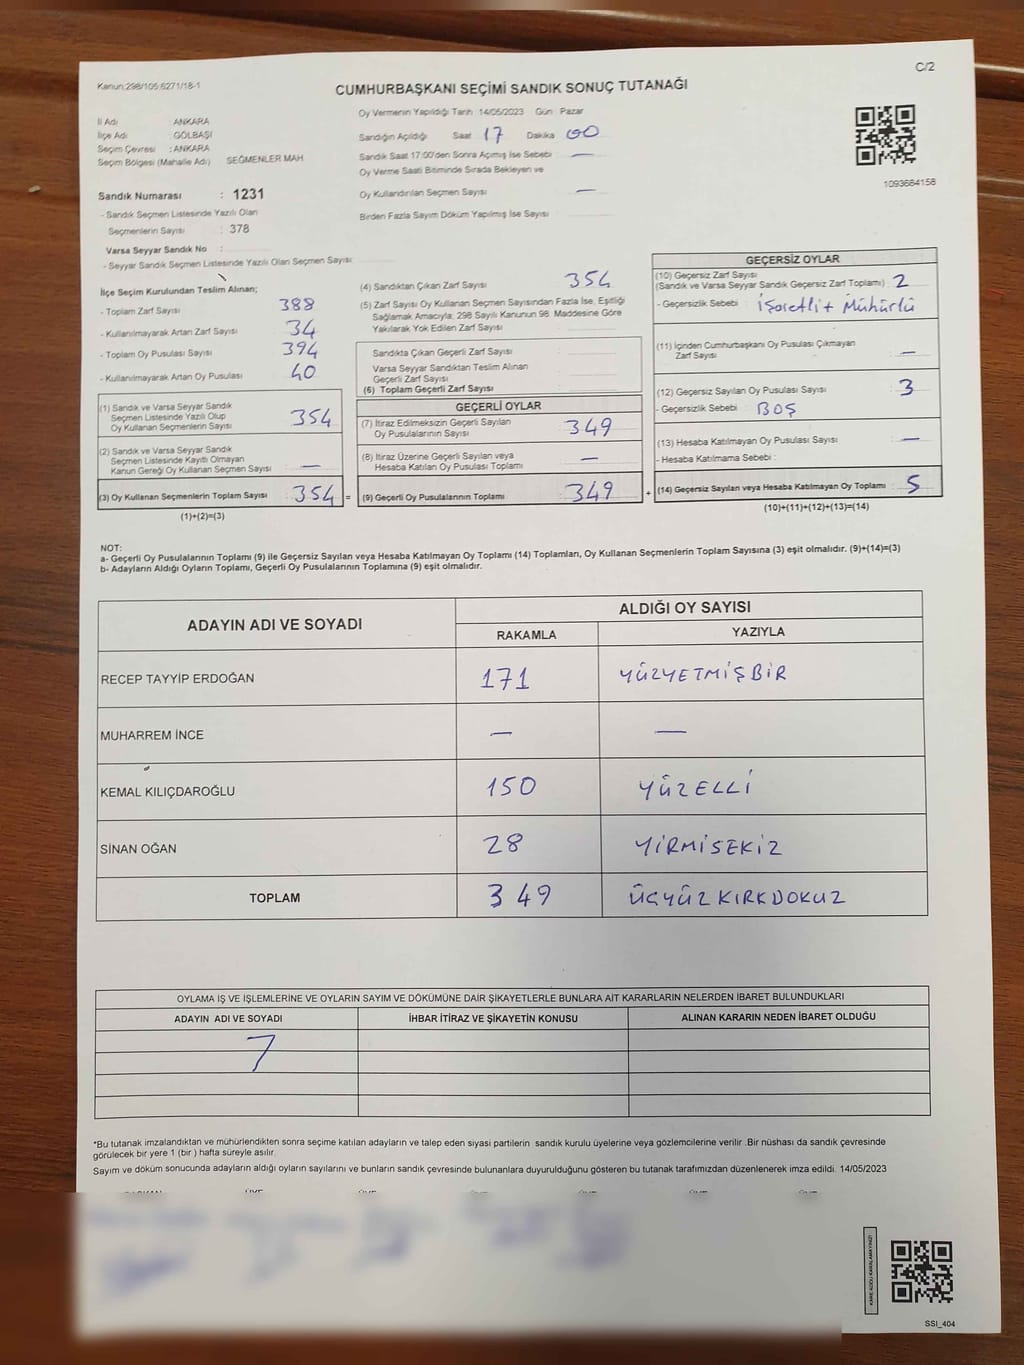 C/2
Kanun:298/105;6271/18-1
CUMHURBAŞKANI SEÇİMİ SANDIK SONUÇ TUTANAĞI
İl Adı ANKARA
İlçe Adı GÖLBAŞI
Seçim Çevresi : ANKARA
Seçim Bölgesi (Mahalle Adı) SEĞMENLER MAH
Sandık Numarası : 1231
- Sandık Seçmen Listesinde Yazılı Olan
Seçmenlerin Sayısı : 378
Varsa Seyyar Sandık No :
- Seyyar Sandık Seçmen Listesinde Yazılı Olan Seçmen Sayısı:
Oy Vermenin Yapıldığı Tarih 14/05/2023 Gün : Pazar
Sandığın Açıldığı Saat 17 Dakika 00
Sandık Saat 17:00'den Sonra Açımış İse Sebebi —
Oy Verme Saati Bitiminde Sırada Bekleyen ve
Oy Kullandırılan Seçmen Sayısı —
Birden Fazla Sayım Döküm Yapılmış İse Sayısı
1093684158
İlçe Seçim Kurulundan Teslim Alınan;
- Toplam Zarf Sayısı 388
- Kullanılmayarak Artan Zarf Sayısı 34
- Toplam Oy Pusulası Sayısı 394
- Kullanılmayarak Artan Oy Pusulası 40
(1) Sandık ve Varsa Seyyar Sandık
Seçmen Listesinde Yazılı Olup
Oy Kullanan Seçmenlerin Sayısı 354
(2) Sandık ve Varsa Seyyar Sandık
Seçmen Listesinde Kayıtlı Olmayan
Kanun Gereği Oy Kullanan Seçmen Sayısı —
(3) Oy Kullanan Seçmenlerin Toplam Sayısı 354 =
(1)+(2)=(3)
(4) Sandıktan Çıkan Zarf Sayısı 354
(5) Zarf Sayısı Oy Kullanan Seçmen Sayısından Fazla İse, Eşitliği
Sağlamak Amacıyla; 298 Sayılı Kanunun 98. Maddesine Göre
Yakılarak Yok Edilen Zarf Sayısı
Sandıkta Çıkan Geçerli Zarf Sayısı
Varsa Seyyar Sandıktan Teslim Alınan
Geçerli Zarf Sayısı
(6) Toplam Geçerli Zarf Sayısı
GEÇERLİ OYLAR
(7) İtiraz Edilmeksizin Geçerli Sayılan
Oy Pusulalarının Sayısı 349
(8) İtiraz Üzerine Geçerli Sayılan veya
Hesaba Katılan Oy Pusulası Toplamı —
(9) Geçerli Oy Pusulalarının Toplamı 349 +
GEÇERSİZ OYLAR
(10) Geçersiz Zarf Sayısı
(Sandık ve Varsa Seyyar Sandık Geçersiz Zarf Toplamı) 2
- Geçersizlik Sebebi : İşaretli + Mühürlü
(11) İçinden Cumhurbaşkanı Oy Pusulası Çıkmayan
Zarf Sayısı —
(12) Geçersiz Sayılan Oy Pusulası Sayısı 3
- Geçersizlik Sebebi : BOŞ
(13) Hesaba Katılmayan Oy Pusulası Sayısı —
- Hesaba Katılmama Sebebi :
(14) Geçersiz Sayılan veya Hesaba Katılmayan Oy Toplamı 5
(10)+(11)+(12)+(13)=(14)
NOT:
a- Geçerli Oy Pusulalarının Toplamı (9) ile Geçersiz Sayılan veya Hesaba Katılmayan Oy Toplamı (14) Toplamları, Oy Kullanan Seçmenlerin Toplam Sayısına (3) eşit olmalıdır. (9)+(14)=(3)
b- Adayların Aldığı Oyların Toplamı, Geçerli Oy Pusulalarının Toplamına (9) eşit olmalıdır.
ADAYIN ADI VE SOYADI ALDIĞI OY SAYISI
RAKAMLA YAZIYLA
RECEP TAYYİP ERDOĞAN 171 YÜZYETMİŞBİR
MUHARREM İNCE — —
KEMAL KILIÇDAROĞLU 150 YÜZELLİ
SİNAN OĞAN 28 YİRMİSEKİZ
TOPLAM 349 ÜÇYÜZKIRKDOKUZ
OYLAMA İŞ VE İŞLEMLERİNE VE OYLARIN SAYIM VE DÖKÜMÜNE DAİR ŞİKAYETLERLE BUNLARA AİT KARARLARIN NELERDEN İBARET BULUNDUKLARI
ADAYIN ADI VE SOYADI İHBAR İTİRAZ VE ŞİKAYETİN KONUSU ALINAN KARARIN NEDEN İBARET OLDUĞU
7
*Bu tutanak imzalandıktan ve mühürlendikten sonra seçime katılan adayların ve talep eden siyasi partilerin sandık kurulu üyelerine veya gözlemcilerine verilir .Bir nüshası da sandık çevresinde
görülecek bir yere 1 (bir ) hafta süreyle asılır.
Sayım ve döküm sonucunda adayların aldığı oyların sayılarını ve bunların sandık çevresinde bulunanlara duyurulduğunu gösteren bu tutanak tarafımızdan düzenlenerek imza edildi. 14/05/2023
SSI_404